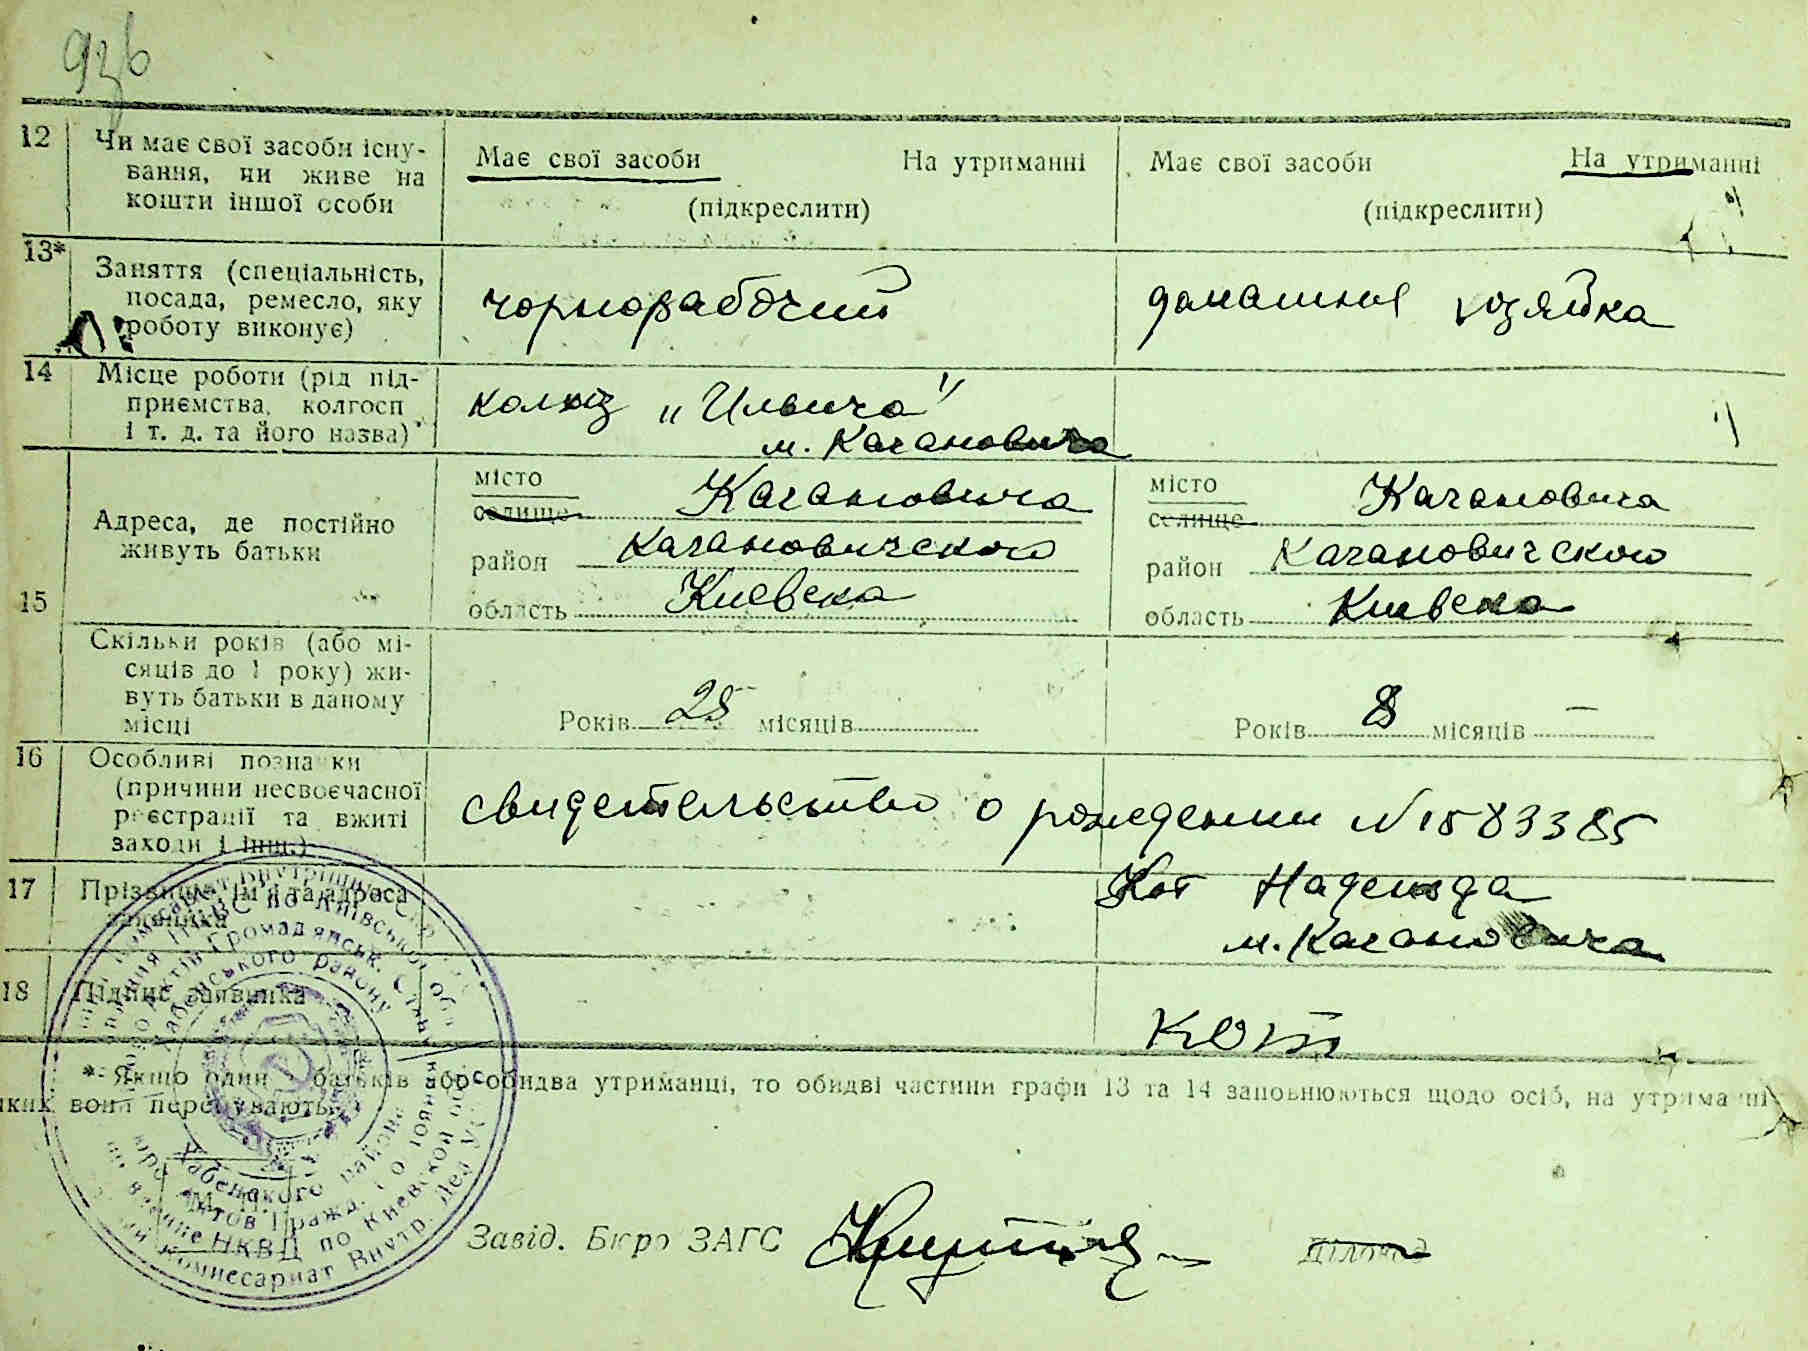 936
12 Чи має свої засоби існу-
вання, чи живе на
кошти іншої особи
Має свої засоби На утриманні
(підкреслити)
Має свої засоби На утриманні
(підкреслити)
13* Заняття (спеціальність,
посада, ремесло, яку
роботу виконує)
чорнорабочий
домашния хозяйка
14 Місце роботи (рід під-
приємства, колгосп
і т. д. та його назва)
колхоз „Ильича"
м. Кагановича
15 Адреса, де постійно
живуть батьки
місто
селище Кагановича
район Кагановичского
область Киевска
місто
селище Кагановича
район Кагановичского
область Киевска
Скільки років (або мі-
сяців до 1 року) жи-
вуть батьки в даному
місці
Років 25 місяців
Років 8 місяців —
16 Особливі познаки
(причини несвоєчасної
реєстрації та вжиті
заходи і інш.)
свидетельство о рождении N 1583385
17 Прізвище, ім'я та адреса
заявника
Кот Надежда
м. Кагановича
18 Підпис заявника
Кот
* Якщо один з батьків або обидва утриманці, то обидві частини графи 13 та 14 заповнюються щодо осіб, на утриманні
яких вони перебувають.
М. П.
Завід. Бюро ЗАГС
Діловод
Хабенского района